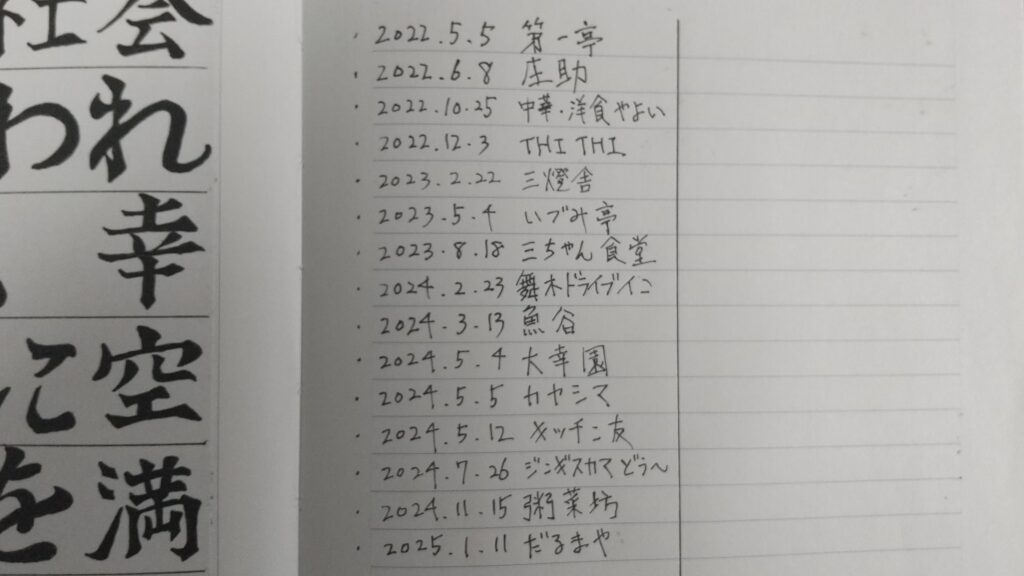 社会
われ
幸
に空
を満
・2022.5.5 第一亭
・2022.6.8 庄助
・2022.10.25 中華・洋食やよい
・2022.12.3 THI THI
・2023.2.22 三燈舎
・2023.5.4 いづみ亭
・2023.8.18 三ちゃん食堂
・2024.2.23 舞木ドライブイン
・2024.3.13 魚谷
・2024.5.4 大幸園
・2024.5.5 カヤシマ
・2024.5.12 キッチン友
・2024.7.26 ジンギスカンどぅ〜
・2024.11.15 粥菜坊
・2025.1.11 だるまや